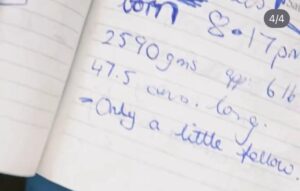 4/4
born 8.17pm
2590 gms app 6 lb
47.5 cms. long.
- Only a little fellow.